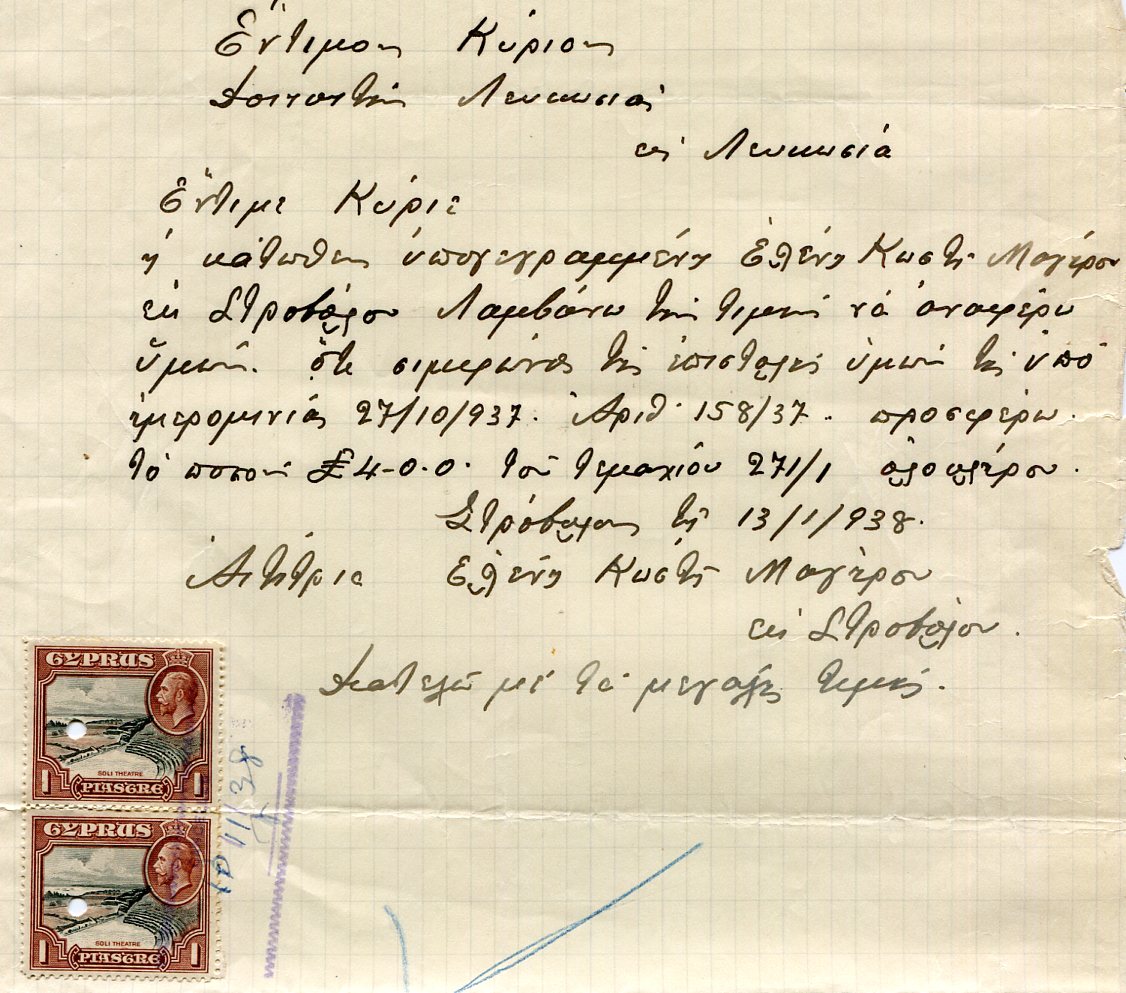 Έντιμον Κύριον
Διοικητήν Λευκωσίας
εις Λευκωσιά
Έντιμε Κύριε
ή κάτωθεν ύπογεγραμμένη Ελένη Κωστή Μαγέρου
εκ Στροβόλου Λαμβάνω την τιμήν νά αναφέρω
ύμών. ότι σιμφώνος της επιστολής ύμών της ύπό
ημερομινίας 27/10/937. Αριθ. 158/37. προσφέρω.
τό ποσόν £4-0.0. τού τεμαχίου 271/1 ολοκλέρου.
Στρόβολος τη 13/1/938.
Αιτήτρια Ελένη Κωστή Μαγέρου
εκ Στροβόλου.
Διατελώ μέ τά μεγαλης τιμής.
CYPRUS
SOLI THEATRE
1 PIASTRE 1
CYPRUS
SOLI THEATRE
1 PIASTRE 1